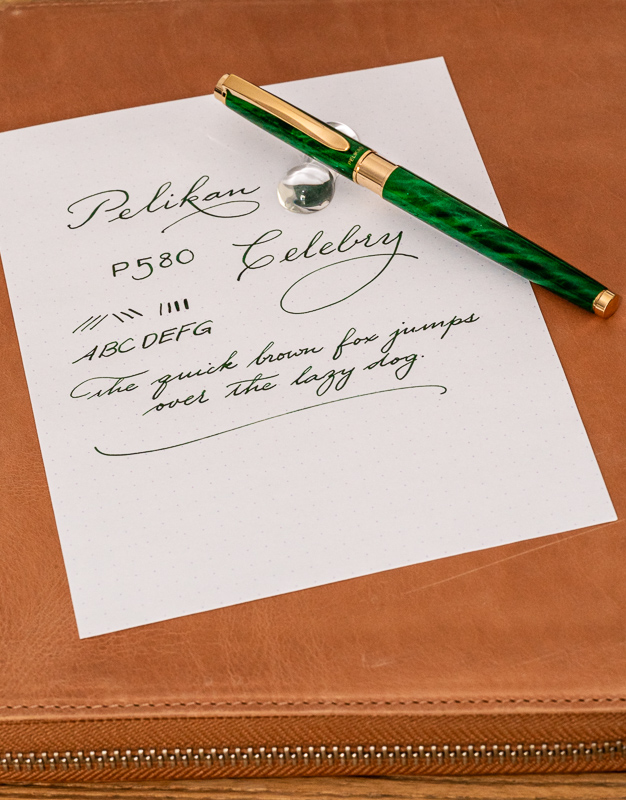 Pelikan
P580 Celebry
ABCDEFG
The quick brown fox jumps
over the lazy dog.
PELIKAN